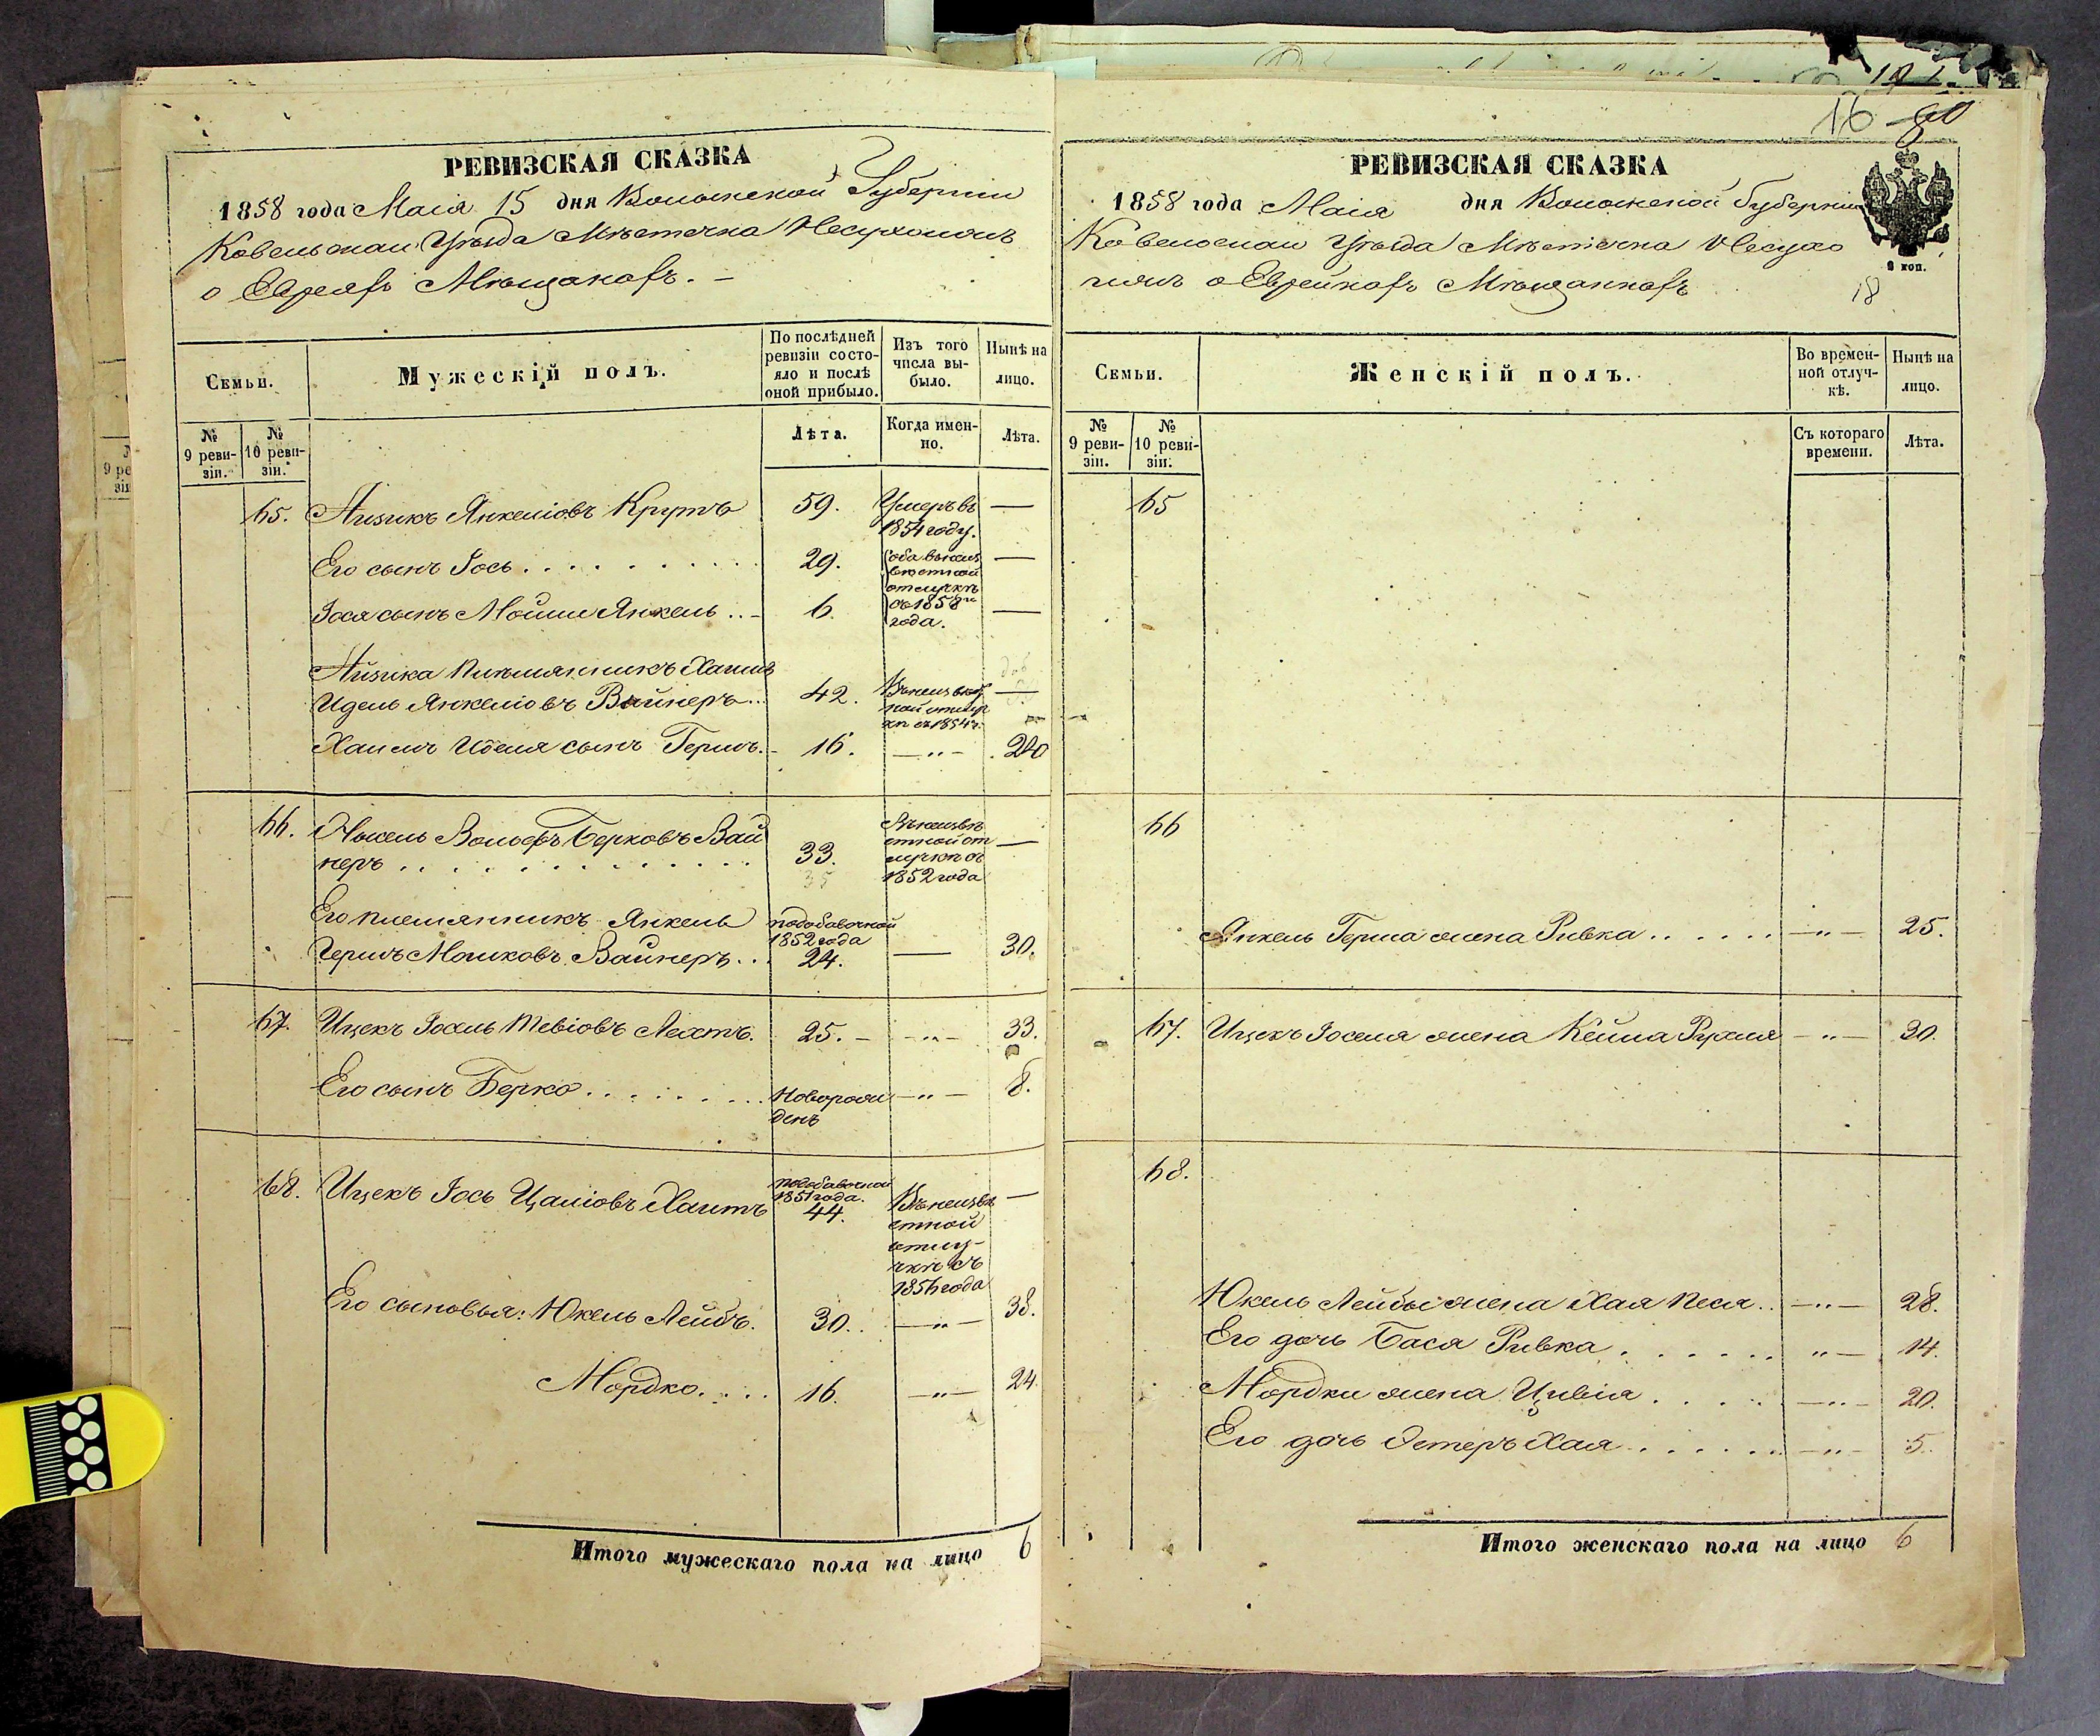 16 80
РЕВИЗСКАЯ СКАЗКА
1858 года Маія 15 дня Волынской Губерніи
Ковельскаго Уѣзда Мѣстечка Несухоижъ
о Евреяхъ Мѣщанахъ. –
Семьи.
Мужескій полъ.
По послѣдней ревизіи состояло и послѣ оной прибыло.
Изъ того числа выбыло.
Нынѣ на лицо.
№ 9 ревизіи.
№ 10 ревизіи.
Лѣта.
Когда именно.
Лѣта.
65. Айзикъ Янкеліовъ Крутъ 59. Умеръ въ 1854 году. —
Его сынъ Іось . . . . . . . . 29. оба въ неизвѣстной отлучкѣ съ 1858 го года. —
Іося сынъ Мошко Янкель . . – 6. —
Айзика племянникъ Хаимъ
Идель Янкеліовъ Вайнеръ . . 42. Въ неизвѣстной отлучкѣ съ 1854 г. —
Хаимъ Иделя сынъ Гершъ. – 16. — " — 20
66. Вольфъ Берковъ Вай
неръ . . . . . . . . . . . . 33. Въ неизвѣстной отлучкѣ съ 1852 года —
35
Его племянникъ Янкель
Гершъ Мошковъ Вайнеръ . . . по добавочной 1852 года 24. — 30.
67. Ицекъ Іосель Тевіовъ Лехтъ. 25. – – " – 33.
Его сынъ Берко . . . . . . . . Новорожденъ — " — 8.
68. Ицекъ Іось Цаліовъ Хаитъ по добавочной 1851 года. 44. Въ неизвѣстной отлучкѣ съ 1856 года —
Его сыновья: Юкель Лейбъ. 30. . — " — 38.
Мордко. . . . 16. — " — 24.
Итого мужескаго пола на лицо 6
РЕВИЗСКАЯ СКАЗКА
1858 года Маія дня Волынской Губерніи
Ковельскаго Уѣзда Мѣстечка Несухо
ижъ о Еврейкахъ Мѣщанкахъ
9 коп.
18
Семьи.
Женскій полъ.
Во временной отлучкѣ.
Нынѣ на лицо.
№ 9 ревизіи.
№ 10 ревизіи.
Съ котораго времени.
Лѣта.
65
66
Янкель Герша жена Ривка . . . . . . — " — 25.
67. Ицекъ Іоселя жена Кейла Рухля — " — 30.
68.
Юкель Лейбы жена Хая Песя . . — " — 28.
Его дочь Бася Ривка . . . . . . " — 14.
Мордки жена Цивія . . . . . — " — 20.
Его дочь Эстеръ Хая . . . . . . — " — 5.
Итого женскаго пола на лицо 6